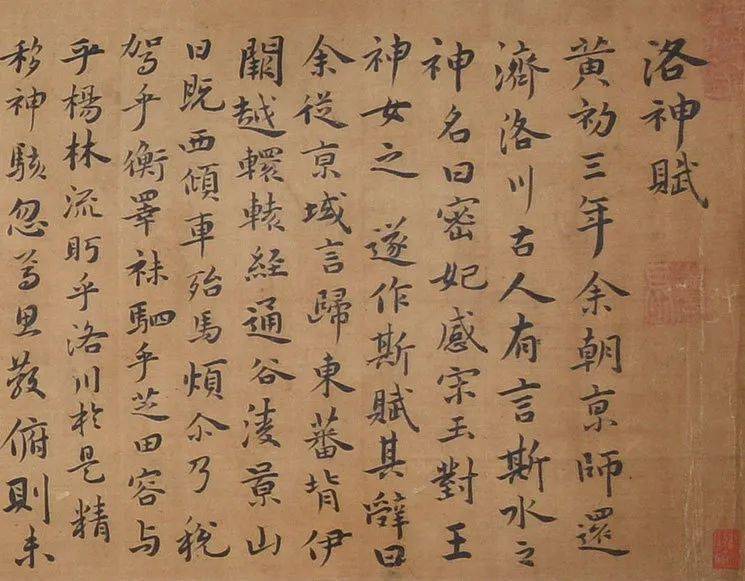 洛神賦
黄初三年余朝京師還
濟洛川古人有言斯水之
神名曰密妃感宋玉對王
神女之 遂作斯賦其辭曰
余従京域言歸東蕃背伊
闕越轘轅経通谷淩景山
日既西傾車殆馬煩尒乃稅
駕乎衡睪袜駟乎芝田容与
乎楊林流眄乎洛川於是精
移神駭忽焉思散俯則未